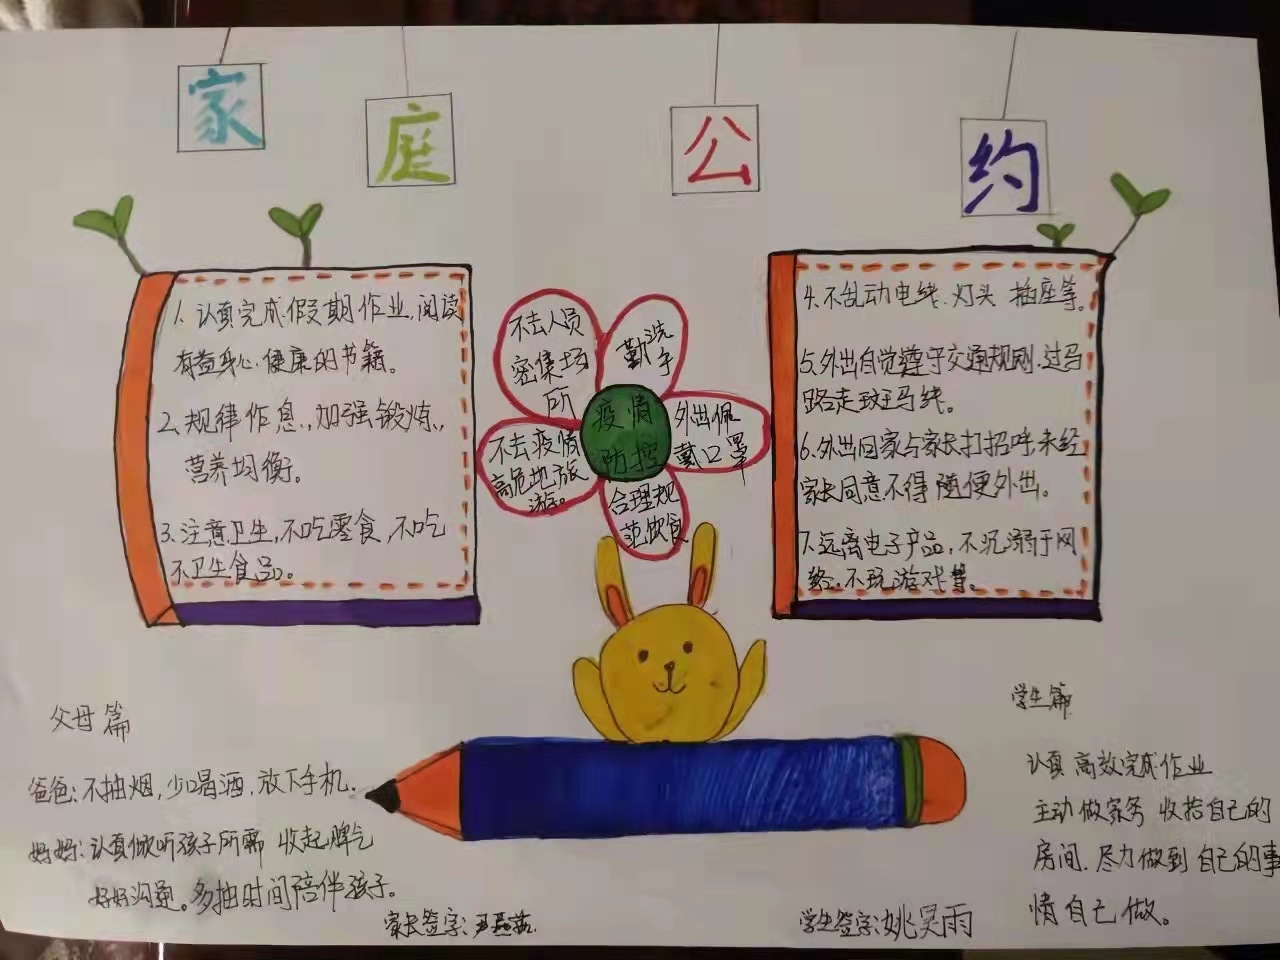 家庭公约
1.认真完成假期作业,阅读
有益身心健康的书籍。
2.规律作息,加强锻炼,
营养均衡。
3.注意卫生,不吃零食,不吃
不卫生食品。
疫情
防控
不去人员
密集场
所
勤洗
手
外出佩
戴口罩
合理规
范饮食
不去疫情
高危地旅
游。
4.不乱动电线、灯头 插座等。
5.外出自觉遵守交通规则,过马
路走斑马线。
6.外出回家与家长打招呼,未经
家长同意不得随便外出。
7.远离电子产品,不沉溺于网
络,不玩游戏等。
父母篇
爸爸:不抽烟,少喝酒,放下手机.
妈妈:认真倾听孩子所需 收起脾气
好好沟通。多抽时间陪伴孩子。
家长签字:
学生篇
认真 高效完成作业
主动做家务 收拾自己的
房间.尽力做到自己的事
情自己做。
学生签字:姚昊雨